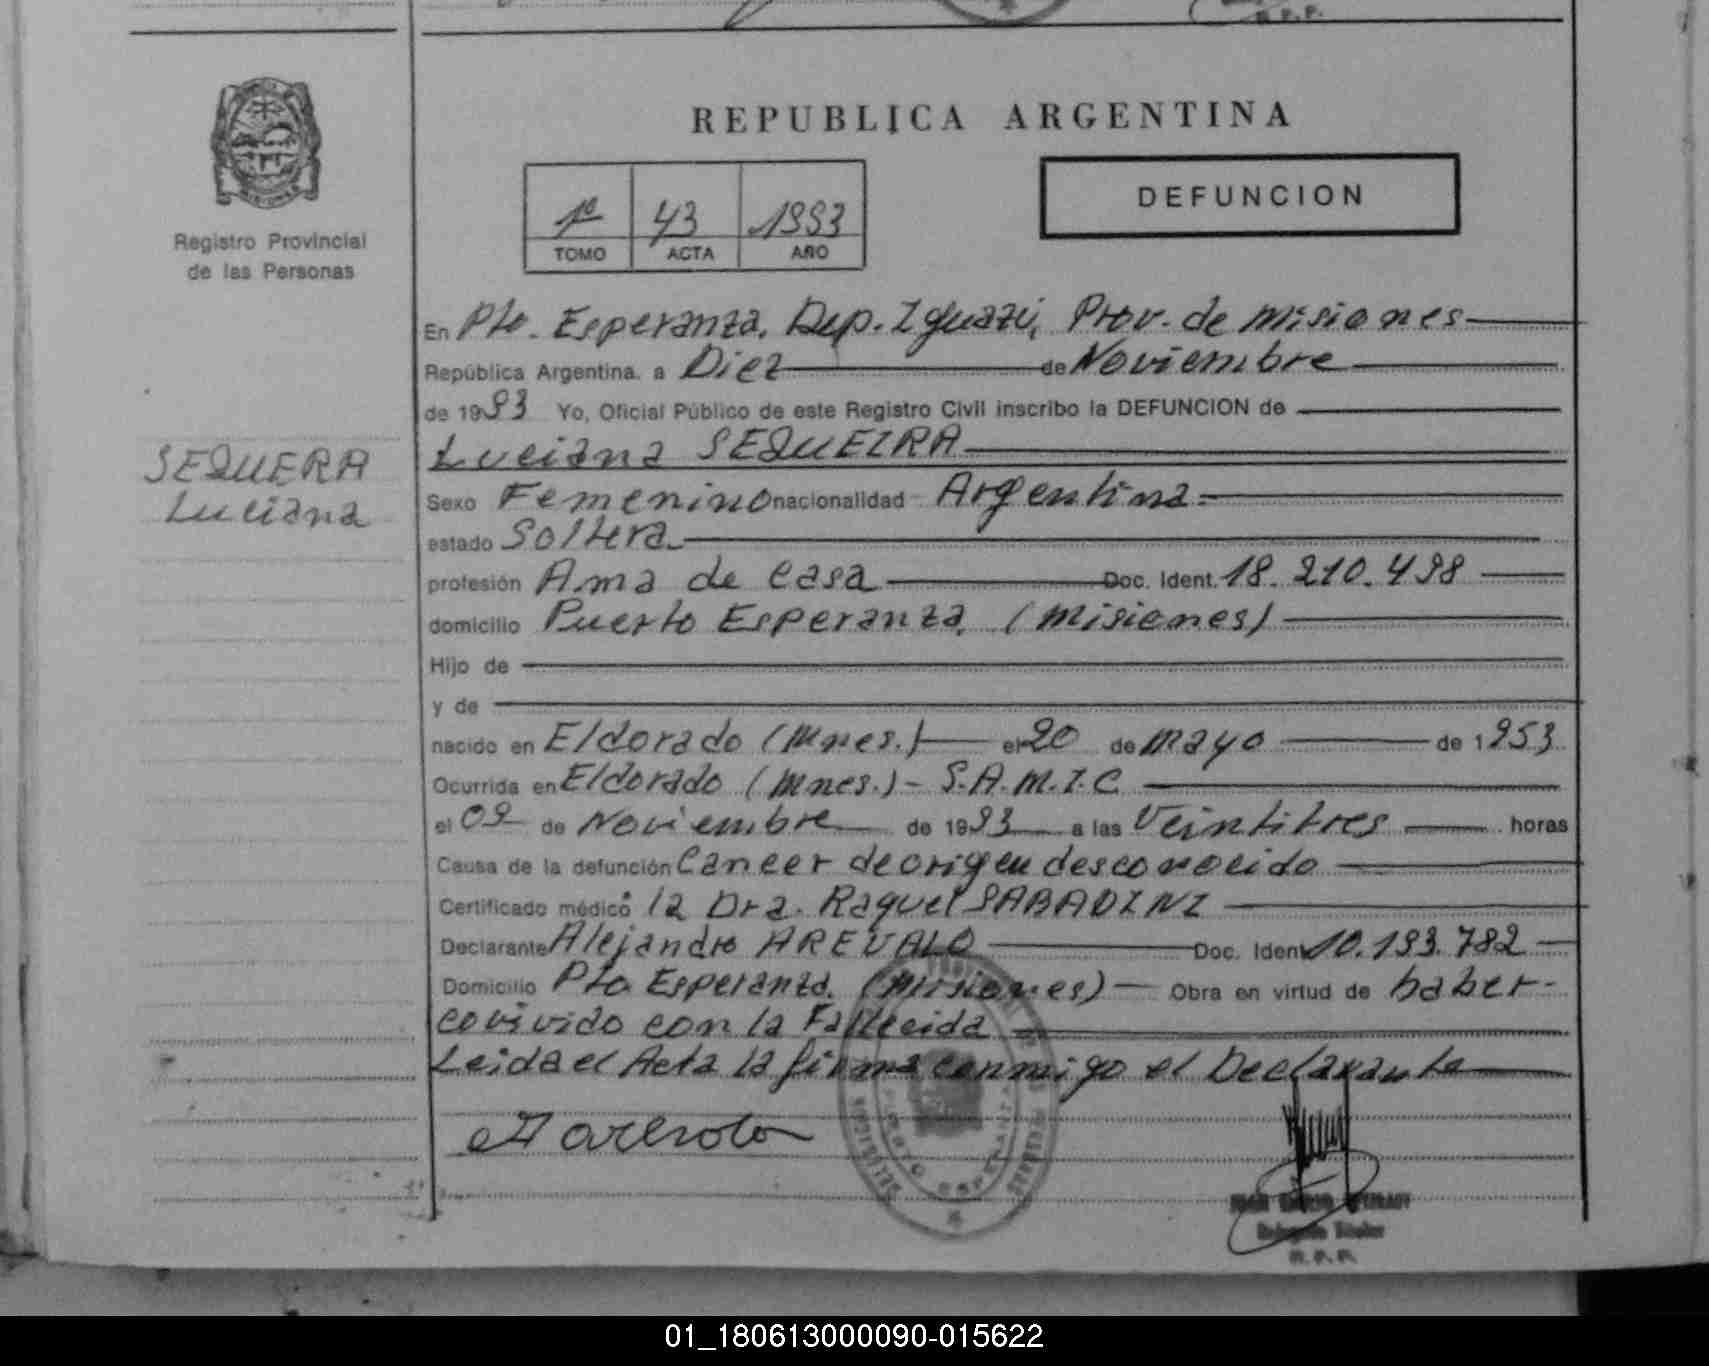 REPUBLICA ARGENTINA
1º 43 1993
TOMO ACTA AÑO
DEFUNCION
Registro Provincial
de las Personas
SEQUERA
Luciana
En Pto. Esperanza, Dep. Iguazú, Prov. de Misiones
República Argentina. a Diez de Noviembre
de 1993 Yo, Oficial Público de este Registro Civil inscribo la DEFUNCION de
Luciana SEQUEIRA
Sexo Femenino nacionalidad Argentina.
estado Soltera
profesión Ama de Casa Doc. Ident. 18.210.498
domicilio Puerto Esperanza, (Misiones)
Hijo de
y de
nacido en Eldorado (Mnes.) el 20 de Mayo de 1953
Ocurrida en Eldorado (Mnes.) - S.A.M.I.C.
el 09 de Noviembre de 1993 a las Veintitres horas
Causa de la defunción Cancer de origen desconocido
Certificado médico la Dra. Raquel SABADINI
Declarante Alejandro AREVALO Doc. Ident 10.193.782
Domicilio Pto Esperanza. (Misiones) Obra en virtud de haber-
covivido con la Fallecida
Leida el Acta la firma conmigo el Declarante
PUERTO ESPERANZA
Delegado Titular
R.P.P.
01_180613000090-015622